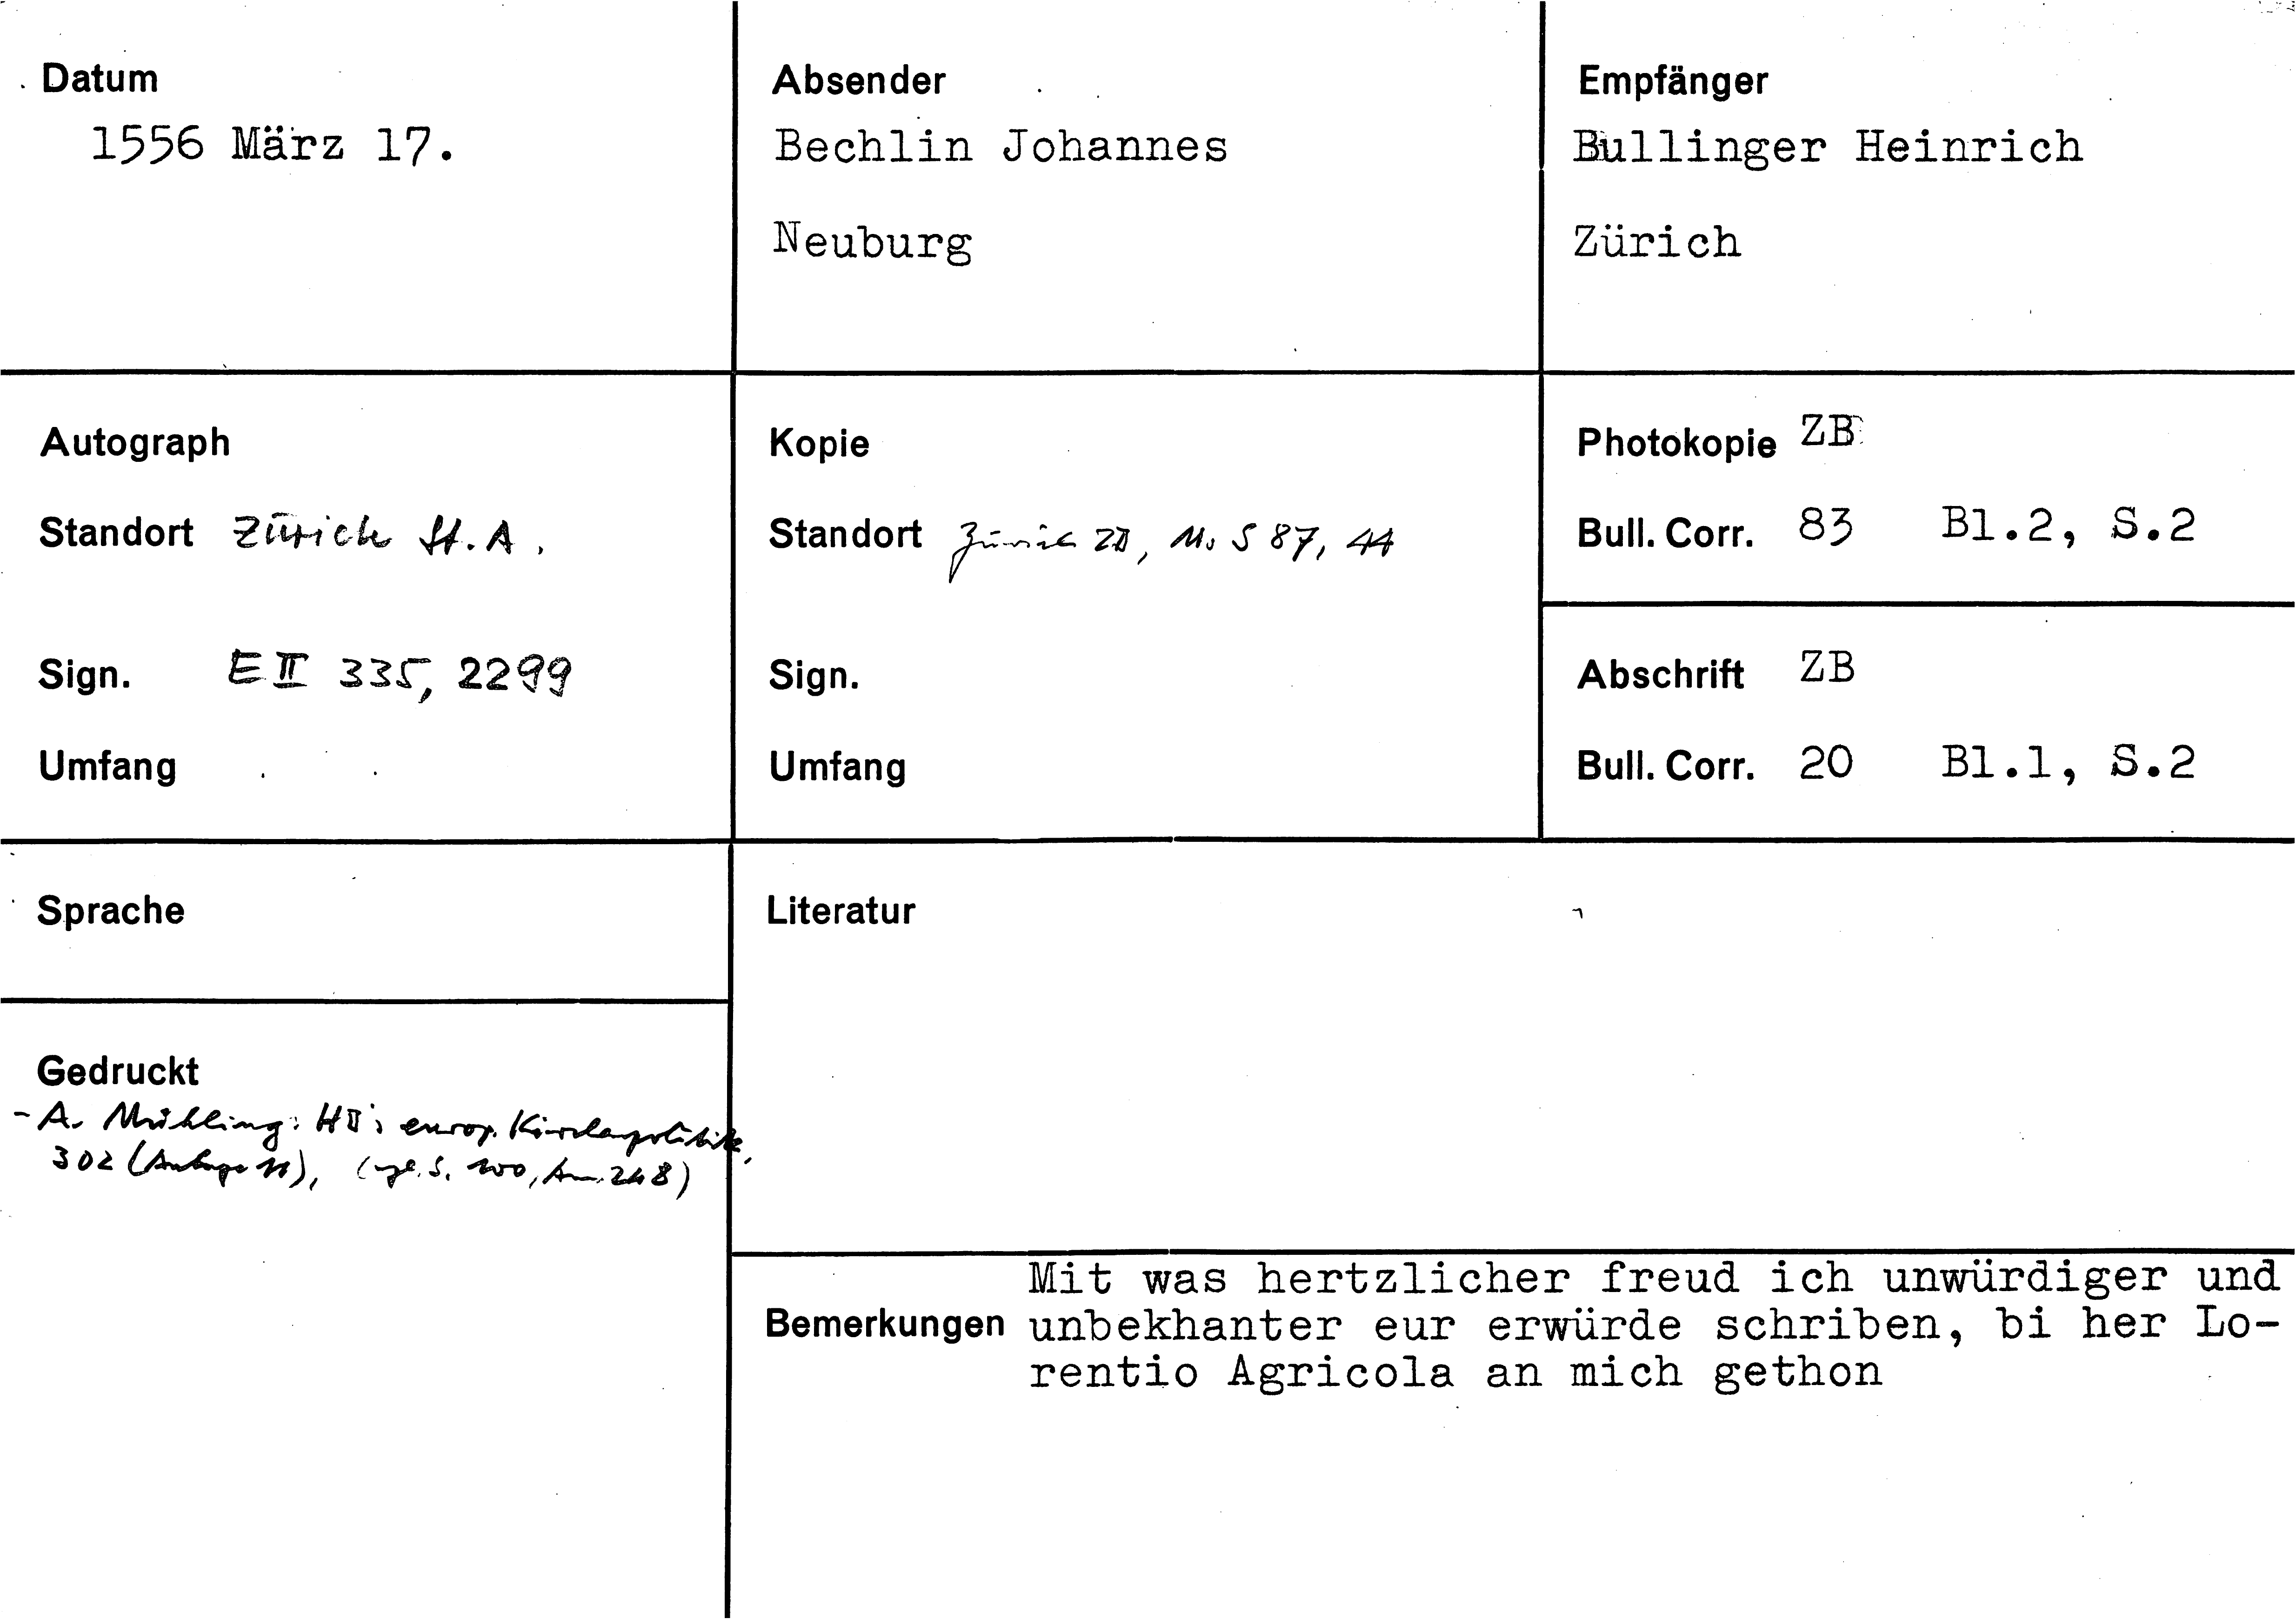 Datum
1556 März 17.
Absender
Bechlin Johannes
Neuburg
Empfänger
Bullinger Heinrich
Zürich
Autograph
Standort Zürich St.A.
Sign. E II 335, 2299
Umfang
Kopie
Standort Zürich ZB, Ms S 87, 44
Sign.
Umfang
Photokopie ZB
Bull. Corr. 83 Bl.2, S.2
Abschrift ZB
Bull. Corr. 20 Bl.1, S.2
Sprache
Gedruckt
- A. Mühling: HB's europ. Kirchenpolitik,
302 (Anhang 11), (vgl. S. 100, Anm. 248)
Literatur
Bemerkungen
Mit was hertzlicher freud ich unwürdiger und
unbekhanter eur erwürde schriben, bi her Lo-
rentio Agricola an mich gethon